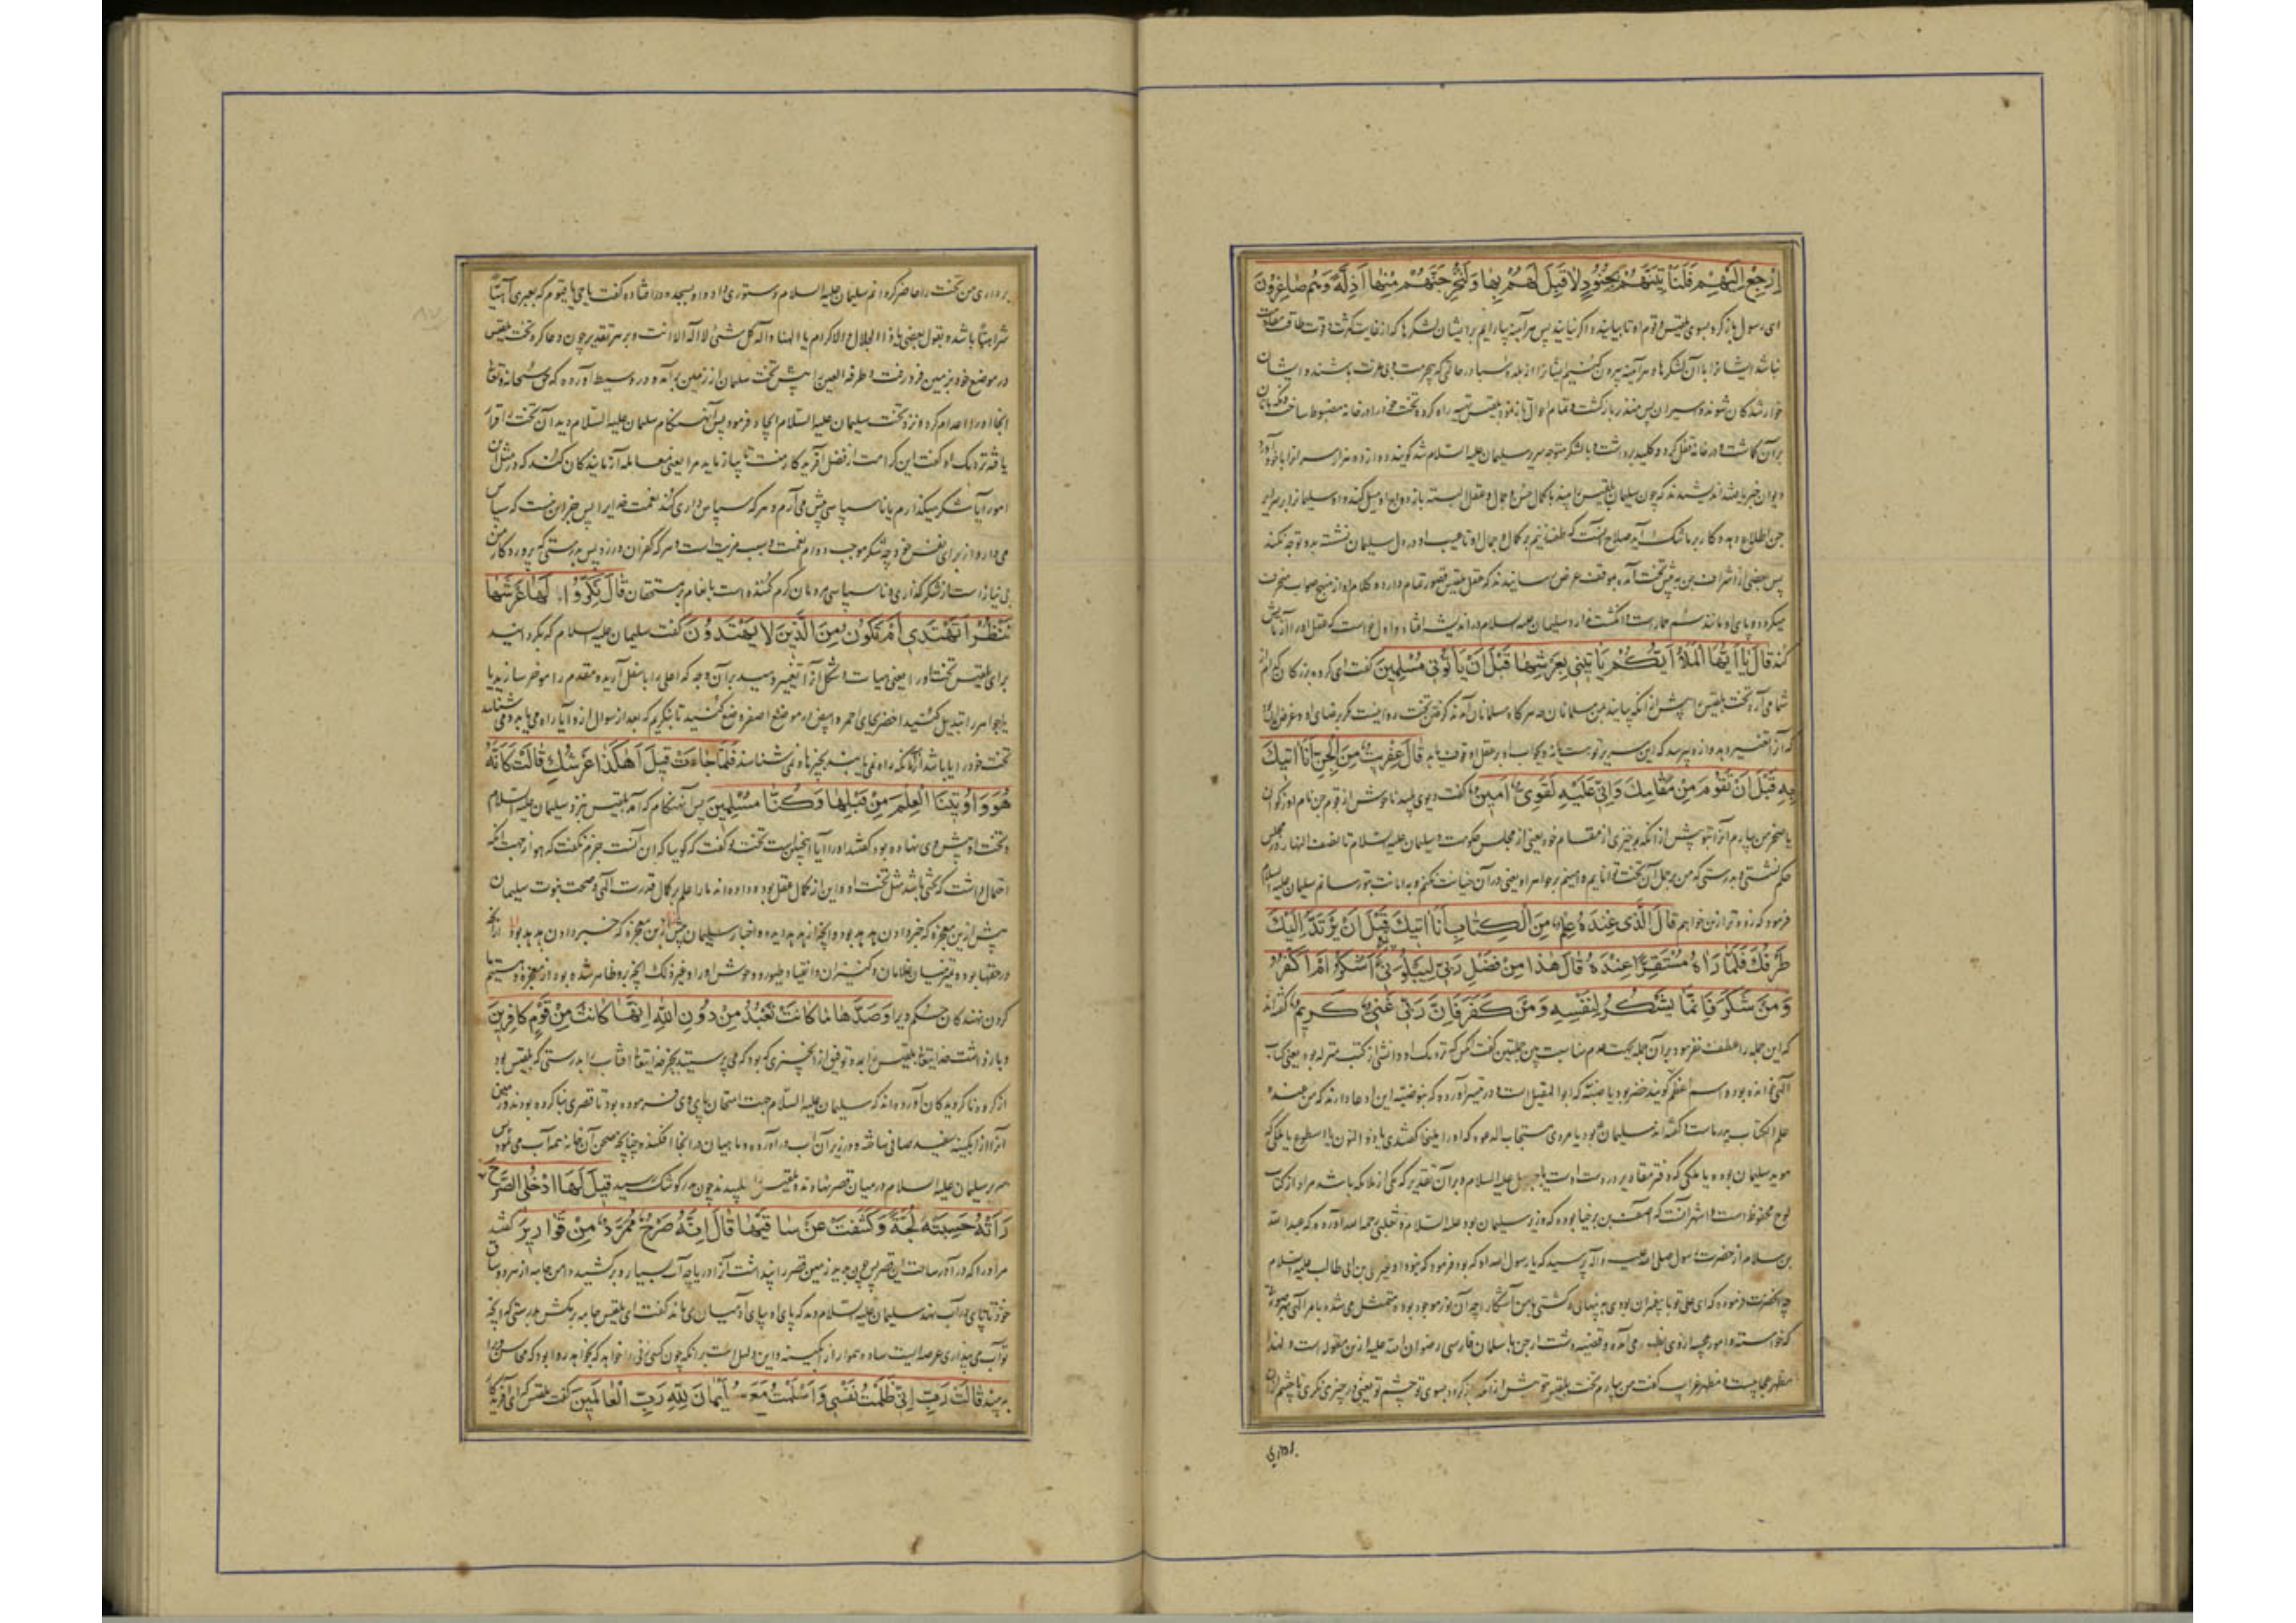 اِرْجِعْ اِلَيْهِمْ فَلَنَأْتِيَنَّهُمْ بِجُنُودٍ لَا قِبَلَ لَهُمْ بِهَا وَلَنُخْرِجَنَّهُمْ مِنْهَا اَذِلَّةً وَهُمْ صَاغِرُونَ
ای رسول باز کرد بسوی بلقیس و قوم او تا بیایند و اگر نیایند پس هر آینه بیاریم بر ایشان لشکرها که از غایت کثرت و قوت طاقت مقاومت
نباشد ایشانرا با آن لشکرها و هر آینه بیرون کنیم ایشانرا از بلده سبا در حالتی که بیحرمت و بی عزت باشند و ایشان
خوار شدکان شوند و اسیران پس منذر بازکشت و تمام احوال باز نمود بلقیس تهیه راه کرده تخت خود را در خانه مضبوط ساخت و نکهبانان
بر آن کماشت و در خانه قفل کرد و کلید برداشت و با لشکر متوجه سریر سلیمان علیه السلام شد کویند دوازده هزار سر
دیوان خبر یافتند اندیشیدند که چون سلیمان بلقیس را بیند با کمال حسن و جمال و عقل البته بازدواج او میل کند و او سلیمانرا بر سرایر
جن اطلاع دهد و کار بر ما تنک آید صلاح آنست که طعنه زنیم بر کمال و جمال او تا عیب او در دل سلیمان نشسته بدو توجه نکند
پس بعضی از اشراف جن به پیش تخت آمده بموقف عرض رسانیدند که عقل بلقیس قصور تمام دارد و کلام او از منهج صواب منحرف
میکردد و پای او مانند سم حمار است و انکشت ندارد سلیمان علیه السلام در اندیشه افتاد و اول خواست که عقل او را آزمایش
کند قَالَ يَا اَيُّهَا الْمَلَاُ اَيُّكُمْ يَأْتِينِي بِعَرْشِهَا قَبْلَ اَنْ يَأْتُونِي مُسْلِمِينَ کفت ای کروه بزرکان کدام
شما می آرد تخت بلقیس را پیش از آنکه بیایند بمن مسلمانان چه هر کاه مسلمانان آمدند کرفتن تخت روا نیست مکر برضای او و غرض
که آنرا تغییر دهد و ازو پرسد که این سریر تو هست یا نه و بجواب او بر عقل او وقوف یابد قَالَ عِفْرِيتٌ مِنَ الْجِنِّ اَنَا اٰتِيكَ
بِهِ قَبْلَ اَنْ تَقُومَ مِنْ مَقَامِكَ وَاِنِّي عَلَيْهِ لَقَوِيٌّ اَمِينٌ کفت دیوی پلید ناخوش از قوم جن نام او ذکوان
یا صخر من بیارم آنرا بتو پیش از آنکه برخیزی از مقام خود یعنی از مجلس حکومت و سلیمان علیه السلام تا نصف النهار در مجلس
حکم نشستی و بدرستی که من بر حمل آن تخت توانایم و امینم بر جواهر او یعنی در آن خیانت نکنم و بامانت بتو رسانم سلیمان علیه السلام
فرمود که زودتر ازین خواهم قَالَ الَّذِي عِنْدَهُ عِلْمٌ مِنَ الْكِتَابِ اَنَا اٰتِيكَ بِهِ قَبْلَ اَنْ يَرْتَدَّ اِلَيْكَ
طَرْفُكَ فَلَمَّا رَاٰهُ مُسْتَقِرًّا عِنْدَهُ قَالَ هٰذَا مِنْ فَضْلِ رَبِّي لِيَبْلُوَنِي ءَاَشْكُرُ اَمْ اَكْفُرُ
وَمَنْ شَكَرَ فَاِنَّمَا يَشْكُرُ لِنَفْسِهِ وَمَنْ كَفَرَ فَاِنَّ رَبِّي غَنِيٌّ كَرِيمٌ کفته اند
که این جمله را عطف نفرمود بر آن جمله بجهت عدم مناسبت بین جملتین کفت آنکس که نزدیک او دانشی از کتب منزله بود یعنی کتاب
آلهی خوانده بود و اسم اعظم کویند خضر بود یا ضبه که ابو القبیل است و در تیسیر آورده که بنو ضبه این ادعا دارند که من عنده
علم الکتاب پدر ماست کفته اند سلیمان بود یا مردی مستجاب الدعوه که او را ملیخا کفتندی یا ذو النون یا اسطوم یا ملکی که
موید سلیمان بوده یا ملکی که دفتر مقادیر در دست اوست یا جبرئیل علیه السلام و بر آن تقدیر که یکی از ملائکه باشد مراد از کتاب
لوح محفوظ است و اشهر آنست که آصف بن برخیا بوده که وزیر سلیمان بود علیه السلام و ثعلبی رحمه الله آورده که عبد الله
بن سلام از حضرت رسول صلی الله علیه و آله پرسید که یا رسول الله او که بود فرمود که نبود او غیر علی بن ابی طالب علیه السلام
چه آنحضرت فرموده که ای علی تو با پیغمبران بودی به پنهانی و کشتی با من آشکارا چه آن نور موجود بوده و متمثل می شده بامر آلهی بهر صورت
که خواسته و امور عجیبه ازوی بظهور می آمده و قضیه دشت ارجن با سلمان فارسی رضوان الله علیه ازین مقوله است و لهذا
مظهر عجایبست و مظهر غرایب کفت من بیارم تخت بلقیس بتو پیش از آنکه باز کردد بسوی تو چشم تو یعنی در چیزی نکری تا چشم از آن
برداری
برداری من تخت را حاضر کرده انم سلیمان علیه السلام دستوری داد و او بسجده در افتاده کفت یا حی یا قیوم که بعبری آهیا
شراهیا باشد و بقول بعضی یا ذا الجلال و الاکرام یا الهنا و اله کل شئ لا اله الا انت و بر هر تقدیر چون دعا کرد تخت بلقیس
در موضع خود بزمین فرو رفت و طرفة العین را پیش تخت سلیمان از زمین برآمد و در وسیط آورده که حق سبحانه و تعالی
آنجا او را اعدام کرد و نزد تخت سلیمان علیه السلام ایجاد فرمود پس آنهنکام سلیمان علیه السلام دید آن تخت را قرار
یافته نزدیک او کفت این کرامت از فضل آفریدکار منست تا بیازماید مرا یعنی معامله آزمایندکان کند که در مثل این
امور آیا شکر میکذارم یا ناسپاسی پیش می آرم و هر که سپاس داری کند نعمت خدایرا پس جز این نیست که سپاس
می دارد از برای نفس خود چه شکر موجب دوام نعمت و سبب مزیت است و هر که کفران ورزد پس بدرستی که پروردکار من
بی نیاز است از شکر کذاری و ناسپاسی مردمان کرم کننده است بانعام بر مستحقان قَالَ نَكِّرُوا لَهَا عَرْشَهَا
نَنْظُرْ اَتَهْتَدِي اَمْ تَكُونُ مِنَ الَّذِينَ لَا يَهْتَدُونَ کفت سلیمان علیه السلام که بکردانید
برای بلقیس تخت او را یعنی هیات و شکل آنرا تغییر دهید بر آن وجه که اعلی را باسفل آرید و مقدم را موخر سازید یا
یا جواهر را تبدیل کنید اخضر بجای احمر و ابیض در موضع اصفر وضع کنید تا بنکریم که بعد از سوال ازو آیا راه می یابد و می شناسد
تخت خود را یا باشد از آنانکه راه نمی یابند بچیزها و نمی شناسند فَلَمَّا جَاءَتْ قِيلَ اَهٰكَذَا عَرْشُكِ قَالَتْ كَاَنَّهُ
هُوَ وَاُوتِينَا الْعِلْمَ مِنْ قَبْلِهَا وَكُنَّا مُسْلِمِينَ پس آنهنکام که آمد بلقیس نزد سلیمان علیه السلام
و تخت او پیش وی نهاده بود کفتند او را آیا آنچنین است تخت تو کفت که کویا که آن آنست جزم نکفت که هو از جهت آنکه
احتمال داشت که تختی باشد مثل تخت او و این از کمال عقل بود و داده اند ما را علم بر کمال قدرت آلهی و صحت نبوت سلیمان
پیش ازین معجزه که خبر دادن هدهد بود و آنچه از هدهد دیده و اخبار سلیمان پیش ازین معجزه که خبر دادن هدهد بود از آنچه
در حقه بود و تمیز میان غلامان و کنیزان و انقیاد طیور و وحوش او را و غیر ذلک آنچه برو ظاهر شده بود از معجزه و هستیم ما
کردن نهندکان حکم ویرا وَصَدَّهَا مَا كَانَتْ تَعْبُدُ مِنْ دُونِ اللهِ اِنَّهَا كَانَتْ مِنْ قَوْمٍ كَافِرِينَ
و باز داشت خدایتعالی بلقیس را بهدایت و توفیق از آنچیزی که بود که می پرستید بجز خدایتعالی آفتاب را بدرستی که بلقیس بود
از کروه ناکرویدکان آورده اند که سلیمان علیه السلام جهت امتحان پای وی فرموده بود تا قصری بنا کرده بودند و صحن
آنرا از آبکینه سفید صافی ساخته و در زیر آن آب درآورده و ماهیان در آنجا افکنده چنانچه صحن آن خانه همه آب می نمود پس
سریر سلیمان علیه السلام در میان قصر نهادند و بلقیس را طلبیدند چون بدر کوشک رسید قِيلَ لَهَا ادْخُلِي الصَّرْحَ فَلَمَّا
رَاَتْهُ حَسِبَتْهُ لُجَّةً وَكَشَفَتْ عَنْ سَاقَيْهَا قَالَ اِنَّهُ صَرْحٌ مُمَرَّدٌ مِنْ قَوَارِيرَ کفتند
مر او را که در آ در ساحت این قصر پس چون بدید زمین قصر را پنداشت آنرا دریاچه آب بسیار و برکشید دامن جامه از هر دو ساق
خود تا پای در آب نهد سلیمان علیه السلام دید که پای او بپای آدمیان می ماند کفت ای بلقیس جامه بر مکش بدرستی که آنچه
تو آب می پنداری عرصه ایست ساده و هموار از آبکینه و این دلیل است بر آنکه چون کسی زنی را خواهد که بخواهد روا بود که محاسن ویرا
به بیند قَالَتْ رَبِّ اِنِّي ظَلَمْتُ نَفْسِي وَاَسْلَمْتُ مَعَ سُلَيْمَانَ لِلّٰهِ رَبِّ الْعَالَمِينَ کفت بلقیس که ای آفریدکار